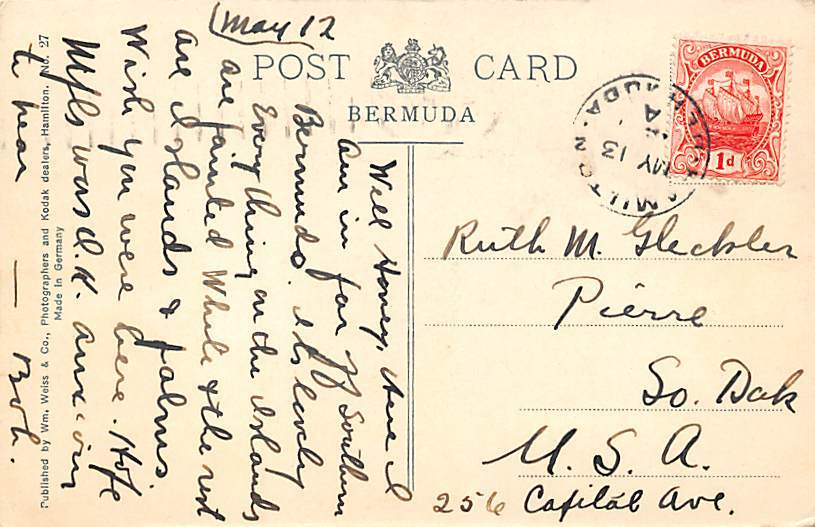 May 12
POST CARD
BERMUDA
Well Honey, here I
am in far off Southern
Bermuda. Its lovely
Every thing on the Islands
are painted White & the rest
are Islands & palms.
Wish you were here. Hope
was O.K. anxious
to hear — Bob.
Published by Wm. Weiss & Co., Photographers and Kodak dealers, Hamilton. No. 27
Made in Germany
BERMUDA
1d
HAMILTON
MY 13
BERMUDA
Ruth M. Gleckler
Pierre
So. Dak
U. S. A.
256 Capital Ave.